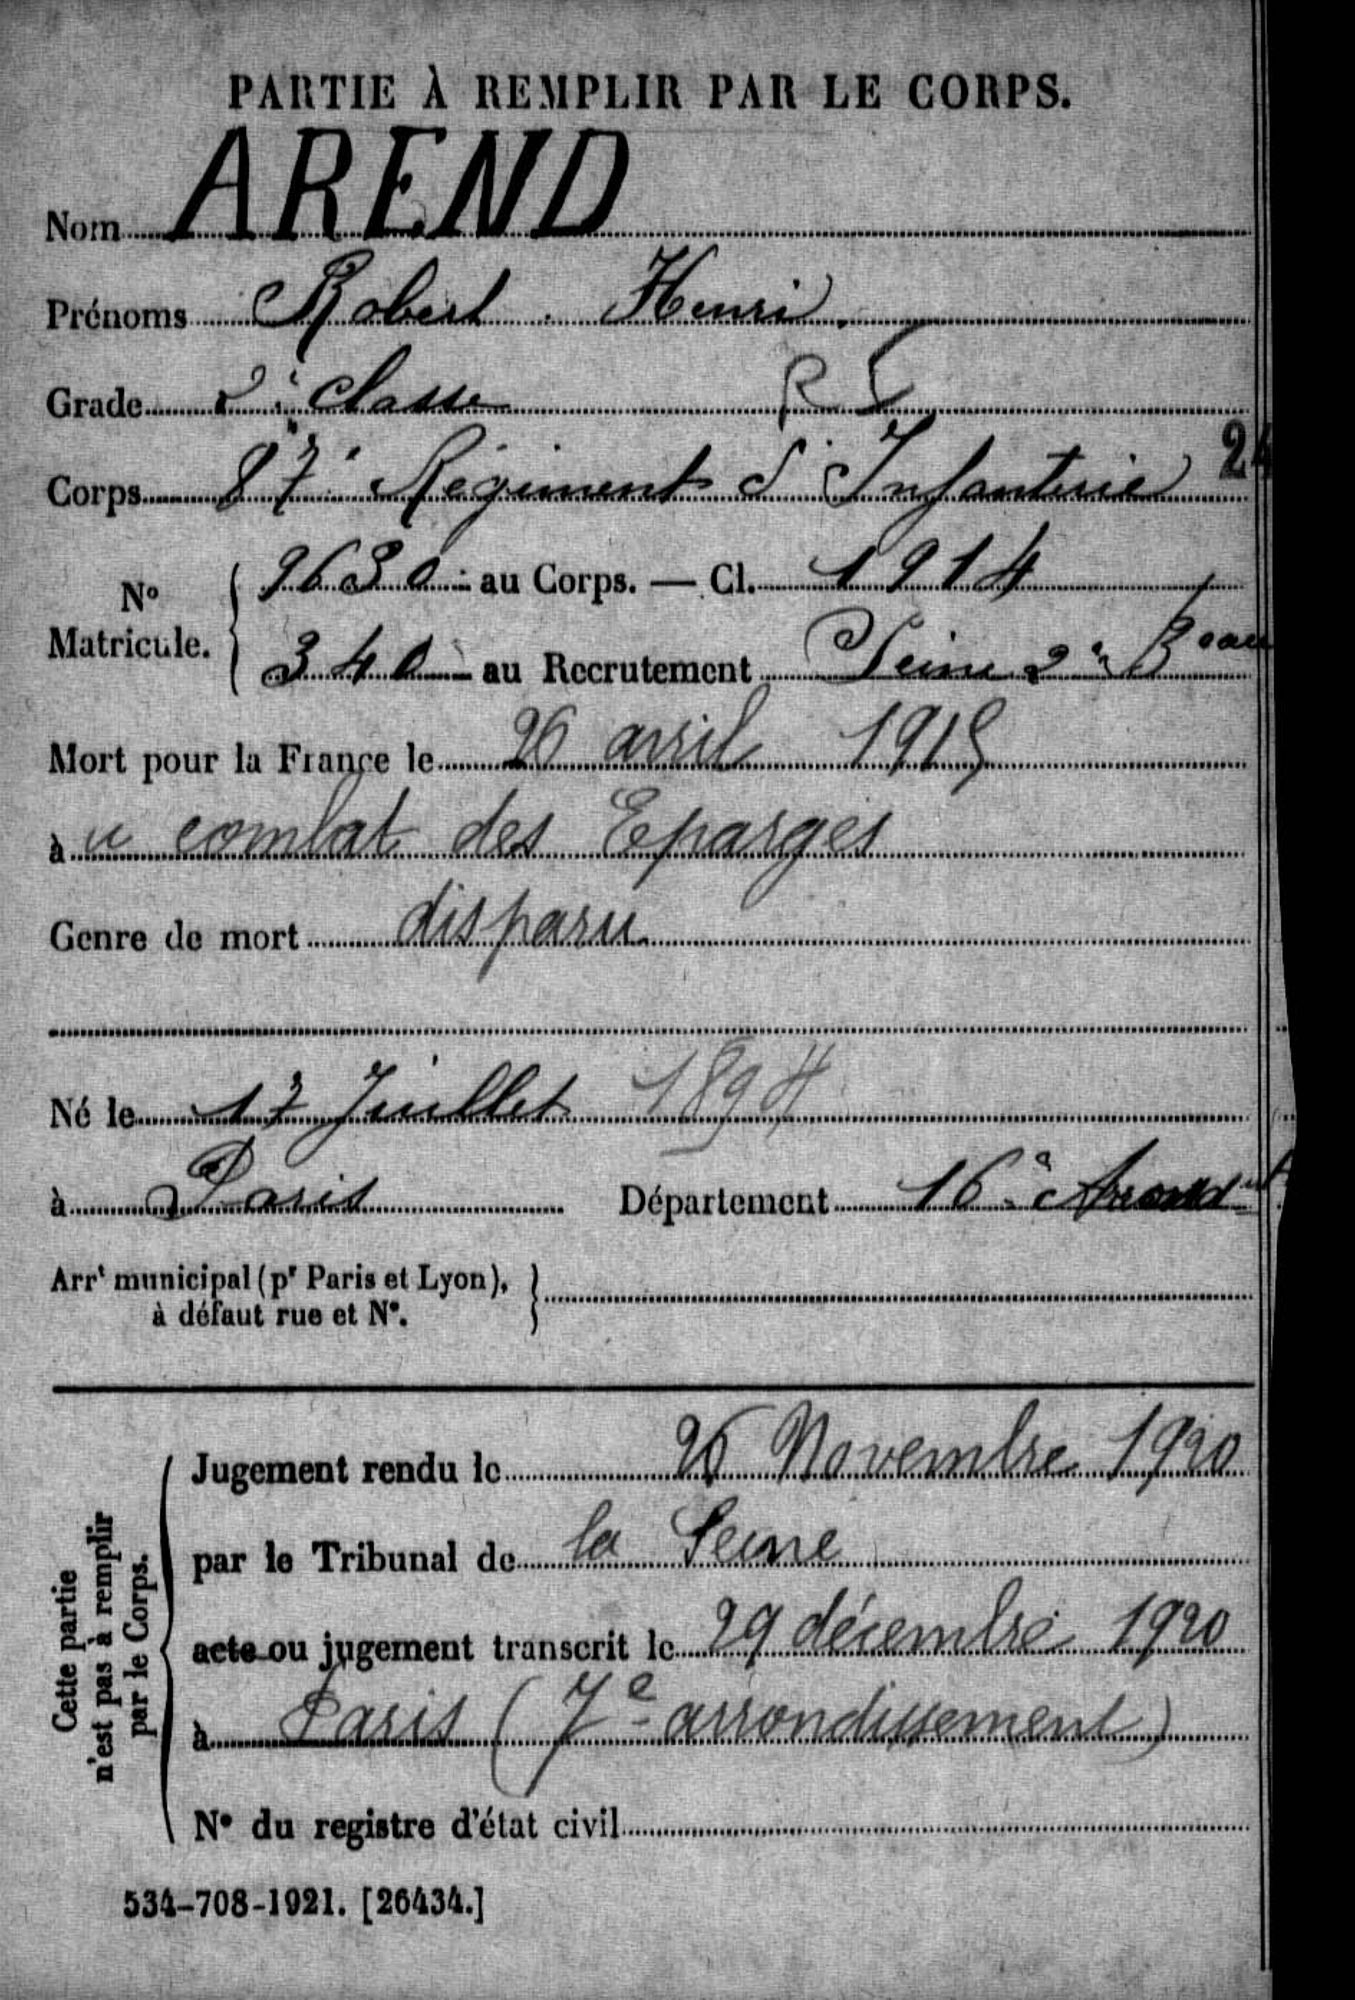 PARTIE À REMPLIR PAR LE CORPS.
Nom AREND
Prénoms Robert Henri.
Grade 2e classe
Corps 87e Régiment d'Infanterie
24
N° Matricule. 9630 au Corps. — Cl. 1914
340 au Recrutement Seine 2e Beau
Mort pour la France le 26 avril 1915
à u combat des Eparges
Genre de mort disparu
Né le 17 Juillet 1894
à Paris Département 16e Arrond
Arrt municipal (pr Paris et Lyon), à défaut rue et N°.
Cette partie n'est pas à remplir par le Corps.
Jugement rendu le 26 Novembre 1920
par le Tribunal de la Seine
acte ou jugement transcrit le 29 décembre 1920
à Paris (7e arrondissement)
N° du registre d'état civil
534-708-1921. [26434.]